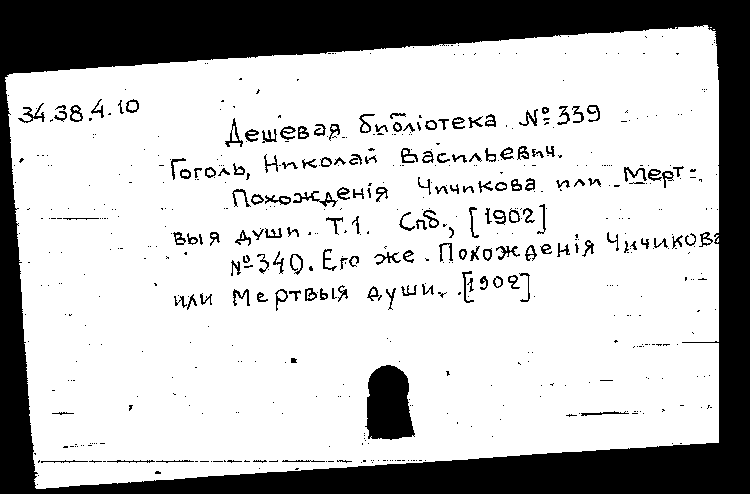 34.38.4.10
Дешевая библіотека №339
Гоголь, Николай Васильевич.
Похожденія Чичикова или Мерт-
выя души. Т.1. Спб., [1902]
№340. Его же. Похожденія Чичикова
или Мертвыя души. [1902]